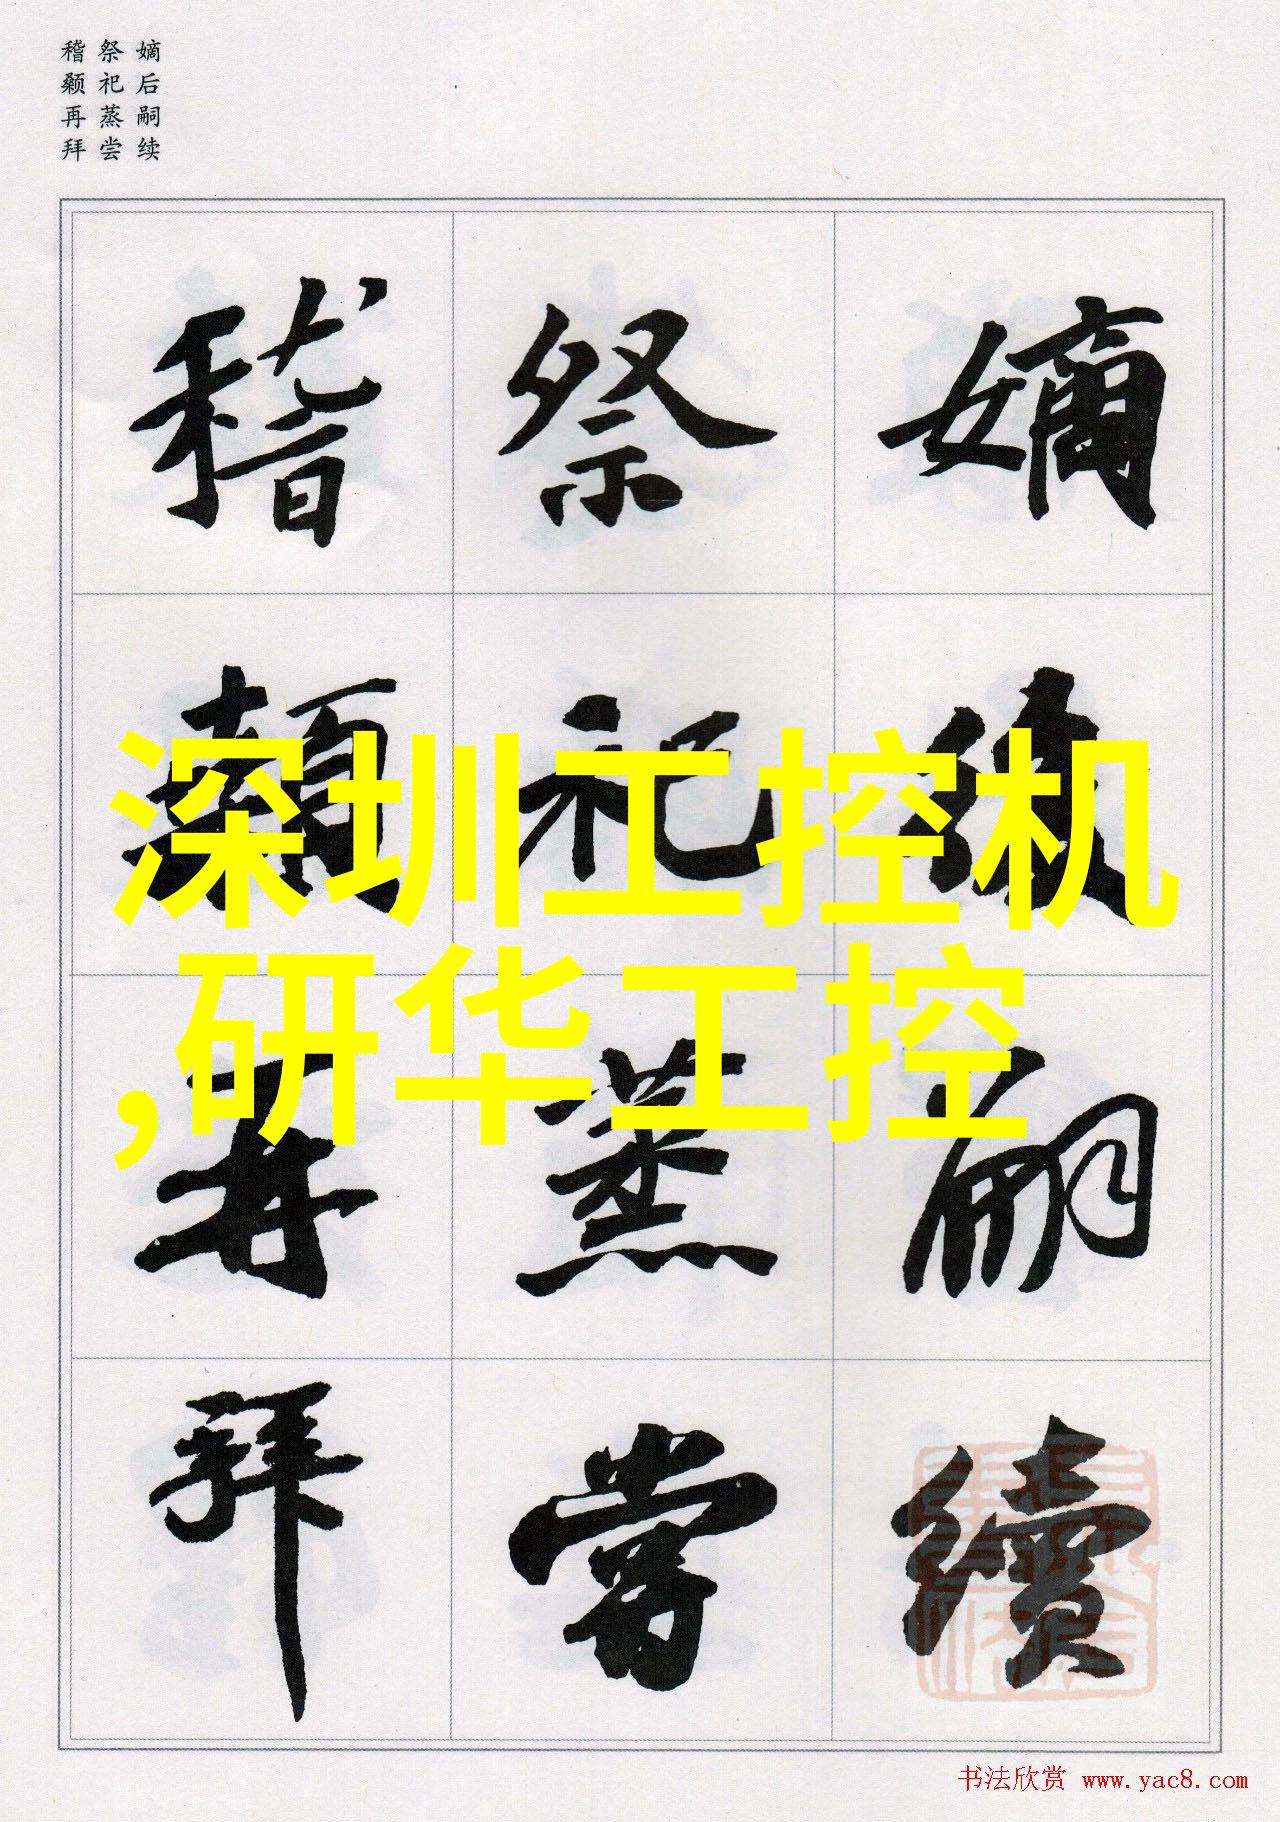 嫡后嗣续
祭祀蒸尝
稽颡再拜
嫡後嗣續
祭祀蒸嘗
稽顙再拜
深圳工控机
,研华工控
书法欣赏 www.yac8.com